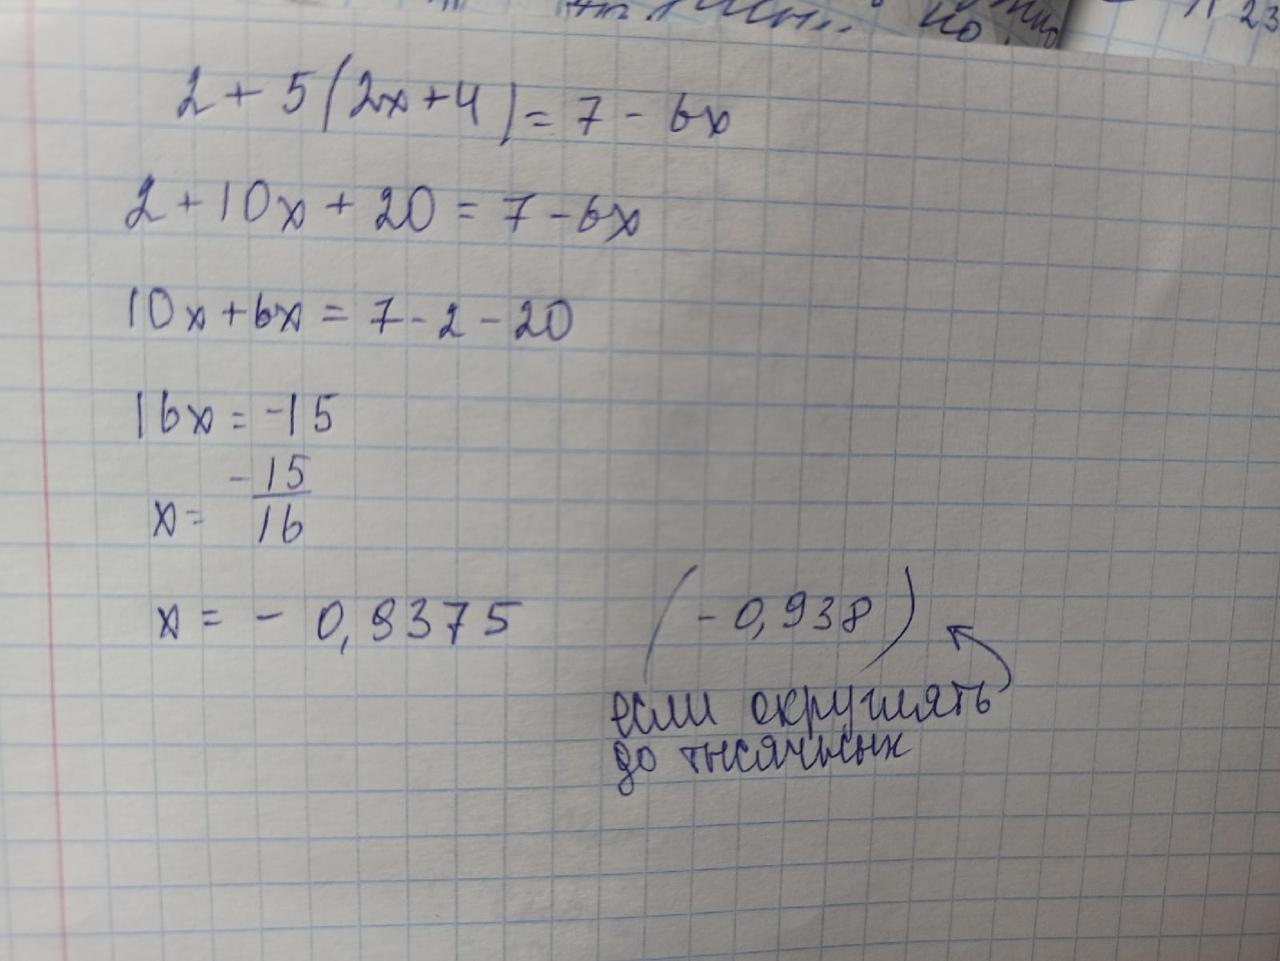 23
2 + 5(2x+4) = 7 - 6x
2 + 10x + 20 = 7 - 6x
10x + 6x = 7 - 2 - 20
16x = -15
x = -15/16
x = - 0,9375 (- 0,938)
если округлять
до тысячных